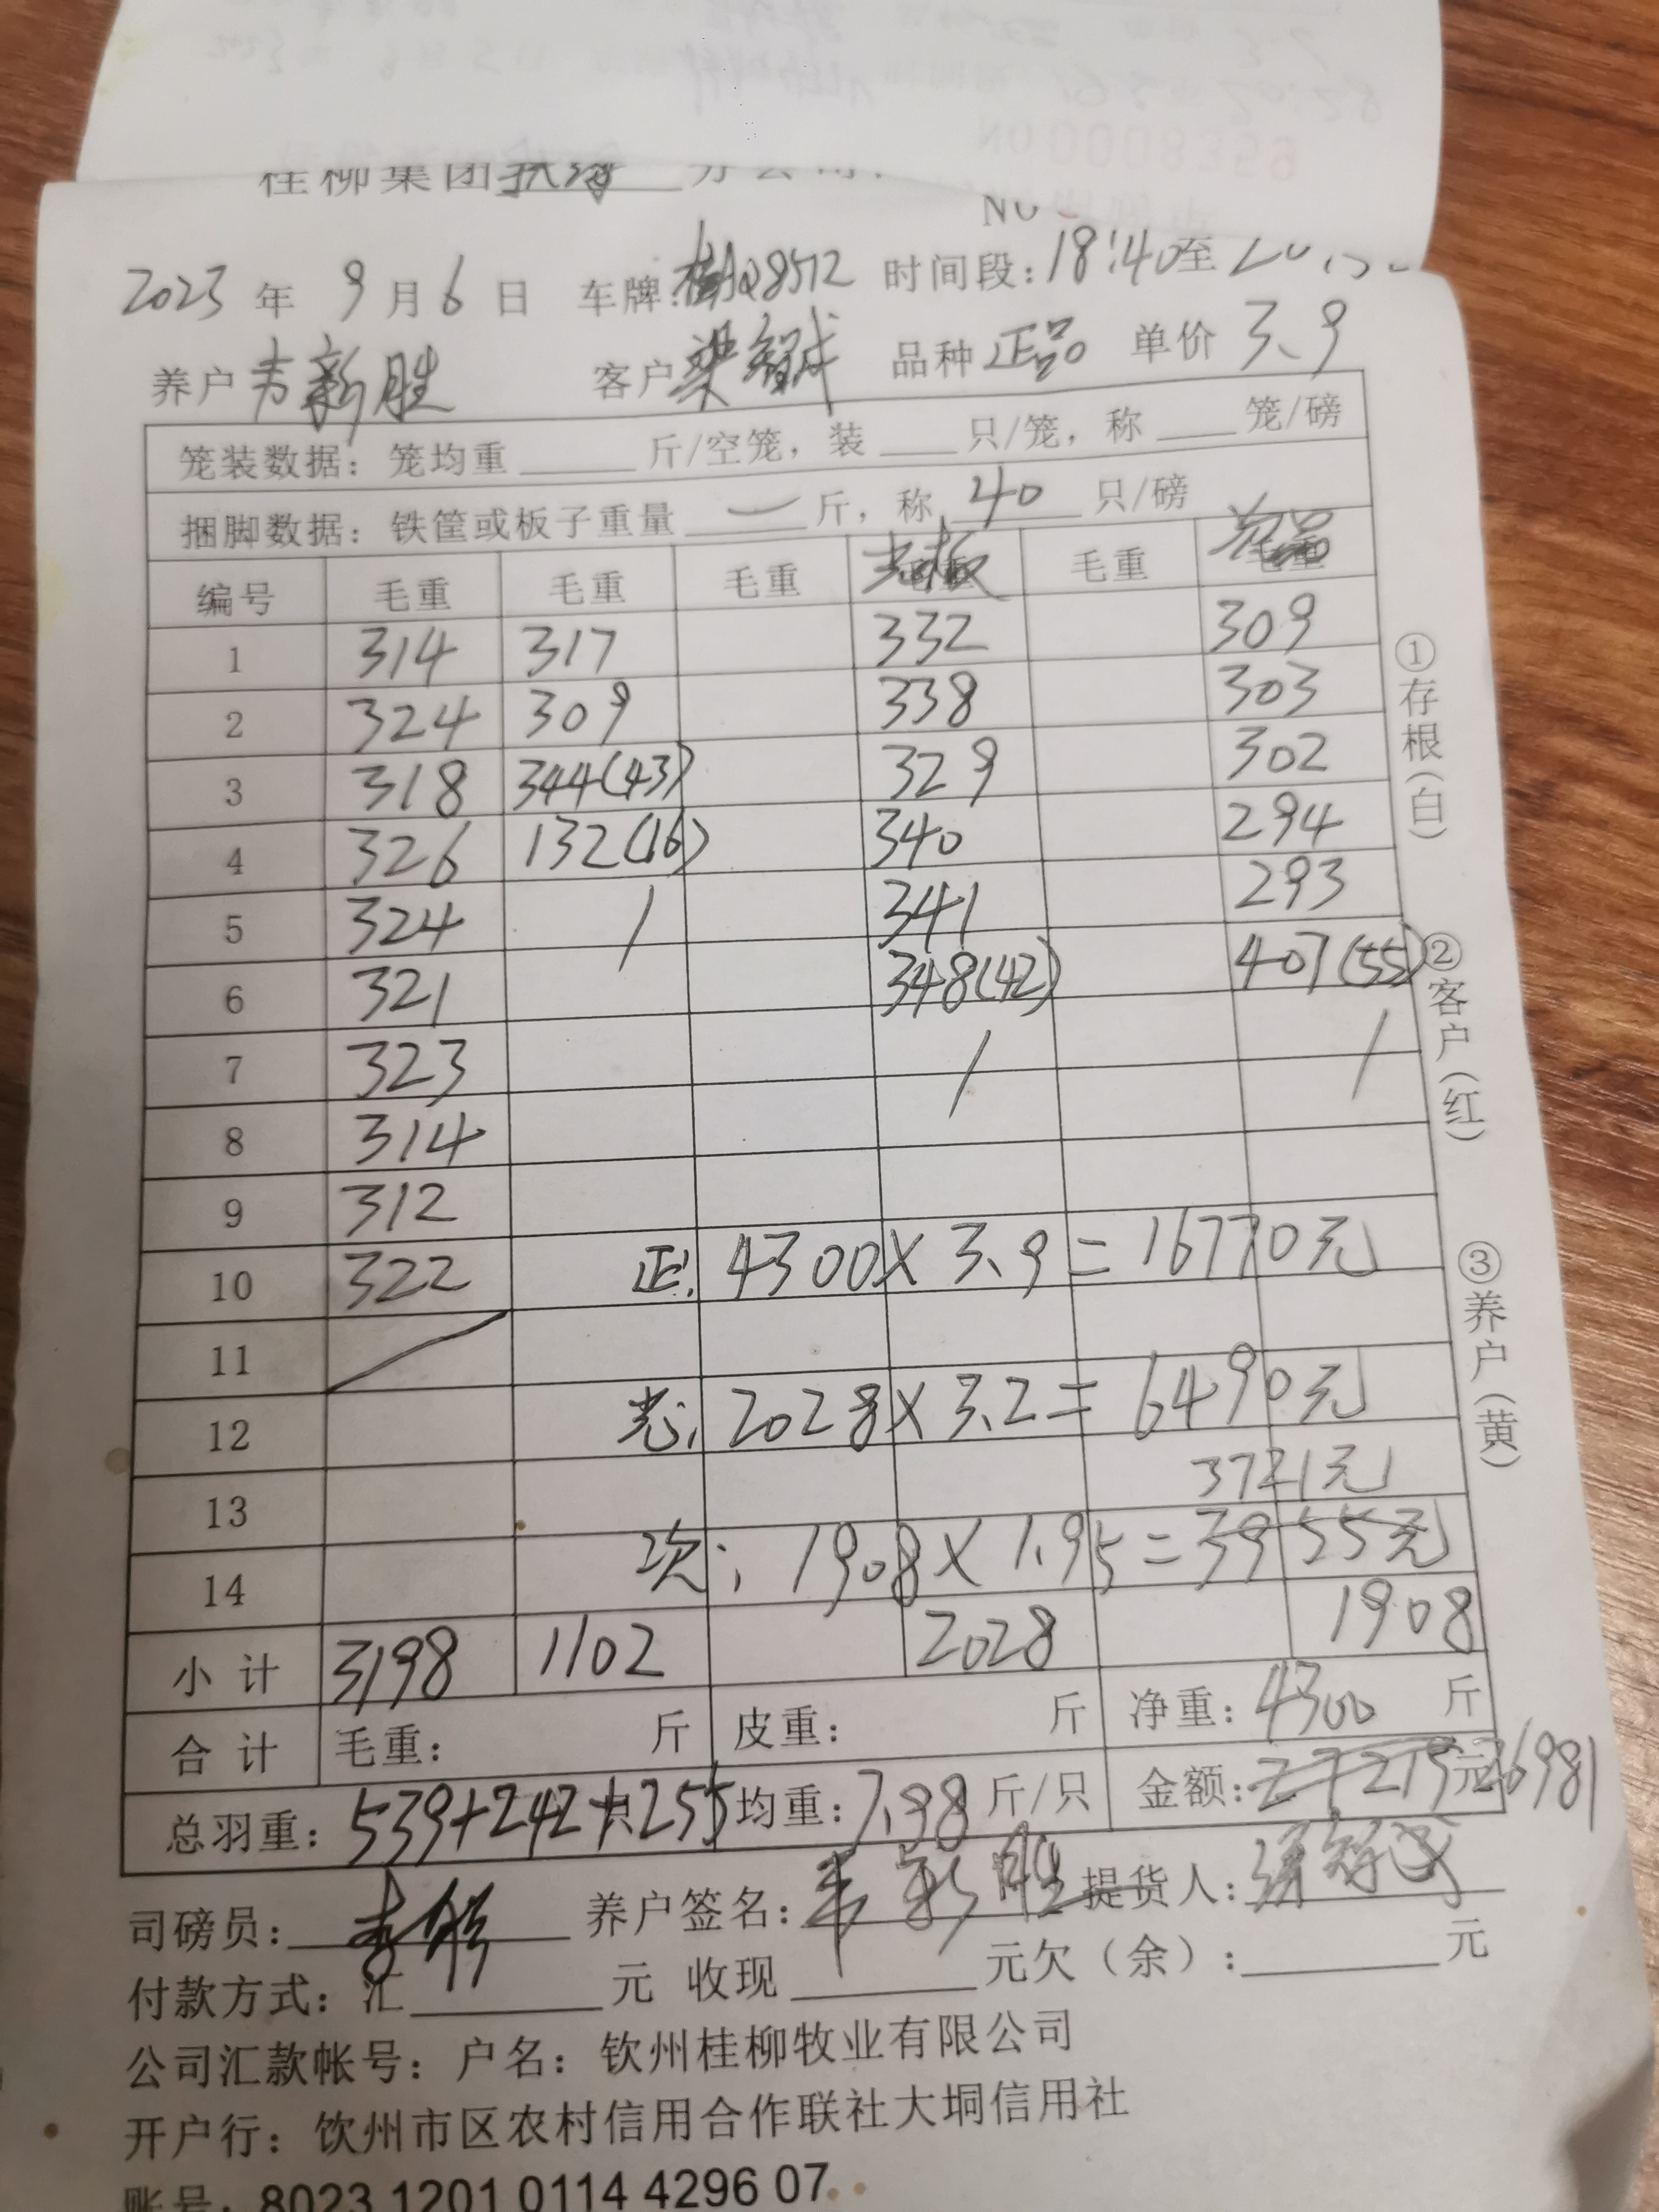 NO 0008359
桂柳集团
NO
2023 年 9 月 6 日 车牌: Q8512 时间段: 18:40 至
养户 韦新胜 客户 梁 品种 正品 单价 3.9
笼装数据: 笼均重 斤/空笼, 装 只/笼, 称 笼/磅
捆脚数据: 铁筐或板子重量 一 斤, 称 40 只/磅
编号 毛重 毛重 毛重 光板 毛重 次品
1 314 317 332 309
2 324 309 338 303
3 318 344(43) 329 302
4 326 132(16) 340 294
5 324 / 341 293
6 321 348(42) 407(55)
7 323 / /
8 314
9 312
10 322 正: 4300×3.9=16770元
11
12 光: 2028×3.2=6490元
13 3721元
14 次: 1908×1.95=3955元
小计 3198 1102 2028 1908
合计 毛重: 斤 皮重: 斤 净重: 4300 斤
总羽重: 539+242+255 只 均重: 7.98 斤/只 金额: 27215 元 26981
司磅员: 养户签名: 韦新胜 提货人:
付款方式: 汇 元 收现 元欠(余): 元
公司汇款帐号: 户名: 钦州桂柳牧业有限公司
开户行: 饮州市区农村信用合作联社大垌信用社
账号: 8023 1201 0114 4296 07
①存根(白)
②客户(红)
③养户(黄)